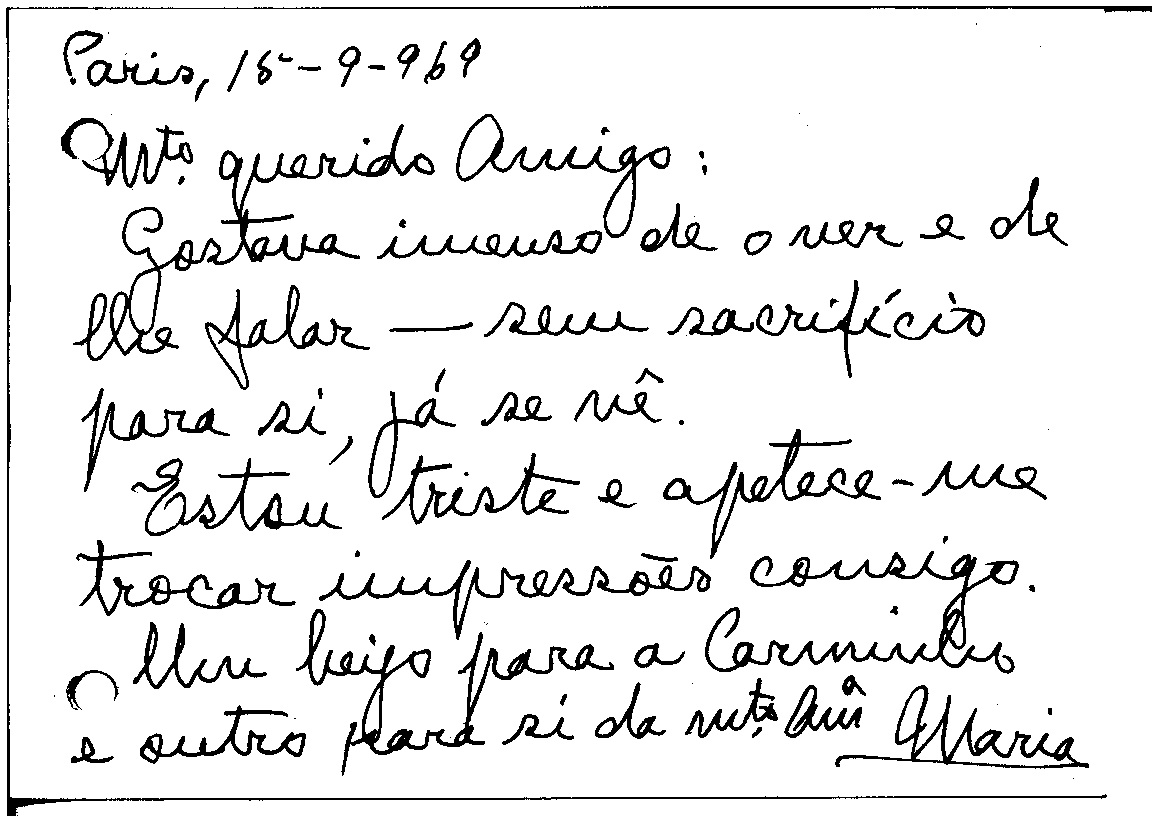 Paris, 15-9-969
Mto. querido Amigo:
Gostava imenso de o ver e de
lhe falar — sem sacrifício
para si, já se vê.
Estou triste e apetece-me
trocar impressões consigo.
Um beijo para a Carminho
e outro para si da mto. Amª
Maria